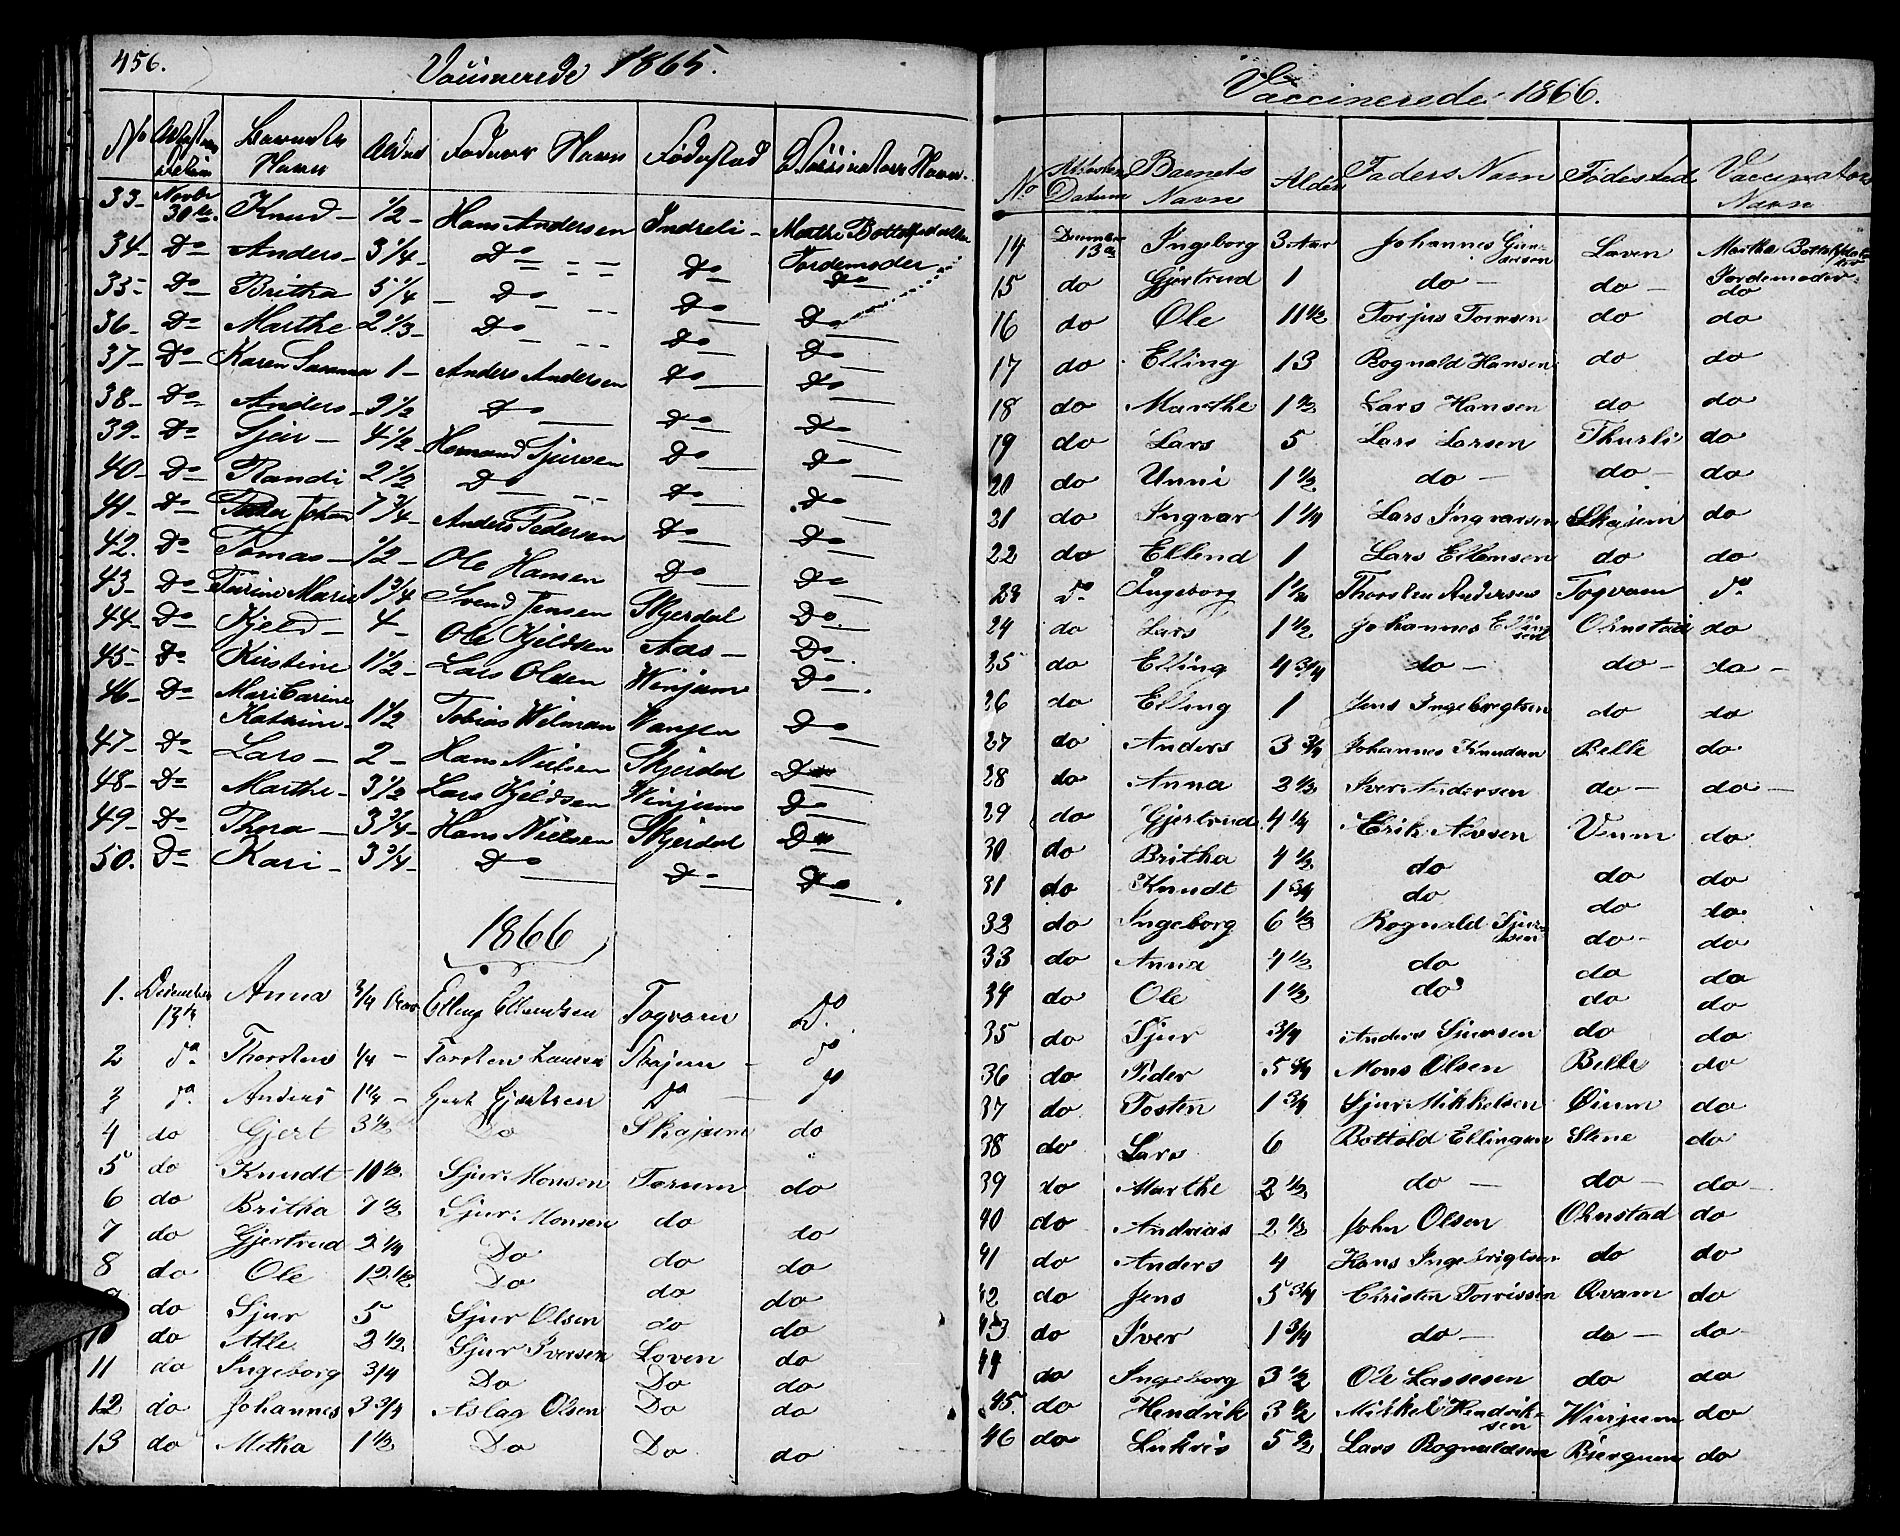 456.
Vaccinerede 1865.
No Attestens Datum Barnets Navn Alder Faders Navn Fødested Vaccinateurs Navn.
33- Novbr 30te. Knud- 1/2- Hans Andersen Indreli- Marthe Bottolfsdatter
34- Do Anders- 3 1/4- Do Do Jordemoder
35- Do Britha 5 1/4- Do Do Do
36- Do Marthe 2 1/3- Do Do Do
37- Do Karen Susanna 1- Anders Andersen Do Do
38- Do Anders- 3 1/2 Do Do Do
39- Do Sjur- 4 1/2- Hermund Sjursen Do Do
40- Do Randi 2 1/2 Do Do Do
41- Do Peder Johan 7 3/4- Anders Pedersen Do Do
42. Do Tomas- 1/2- Ole Hansen Do Do
43- Do Turine Marie 1 3/4 Svend Jensen Skjerdal Do
44- Do Kjeld- 4- Ole Kjeldsen Aas- Do
45- Do Kirstine 1 1/2- Lars Olsen Winjum Do
46- Do Mari Carine
Katrine- 1 1/2 Tobias Wilman Wangen Do
47- Do Lars- 2- Hans Nielsen Skjerdal Do
48- Do Marthe- 3 1/2 Lars Kjeldsen Winjum Do
49- Do Thora- 3 3/4- Hans Nielsen Skjerdal Do
50. Do Kari- 3 3/4- Do Do Do
1866
1. December 13de Anna 3/4 Aar Elling Ellendsen Togvam Do
2 do Thorsten 1/4- Torsten Larsen Skajem- do
3 do Anders 1 1/4- Gjert Gjertsen Do do
4 do Gjert 3 1/2 Do Skajem do
5 do Knudt 10 1/2 Sjur Monsen Torum do
6 do Britha 7 1/2 Sjur Monsen do do
7 do Gjertrud 2 1/4 Do do do
8 do Ole 12 1/2 Do do do
do Sjur 5 Sjur Olsen do do
10 do Atle 2 1/2 Sjur Iversen Loven do
11 do Ingeborg 3/4 Do Do do
12 do Johannes 3 3/4 Aslag Olsen Do do
13 do Metha 1 1/2 Do Do do
Vaccinerede 1866.
No Attestens Datum Barnets Navn Alder Faders Navn Fødested Vaccinators Navn
14 December 13de Ingeborg 3 Aar Johannes Gunvarsen Loven Martha Bottolfsdatter
15 do Gjertrud 1 do- do- Jordemoder do
16 do Ole 11 1/2 Torjus Tormsen do do
17 do Elling 13 Rognald Hansen do do
18 do Marthe 1 1/2 Lars Hansen do do
19 do Lars 5 Lars Larsen Thurli do
20 do Unni 1 1/2 do- do- do
21 do Ingvar 1 1/4 Lars Ingvarsen Skajem do
22 do Ellend 1 Lars Ellensen do do
23 do Ingeborg 1 1/2 Thorsten Andersen Togvam do
24 do Lars 1 1/2 Johannes Ellingsen Ohnstad do
25 do Elling 4 3/4 do- do- do-
26 do Elling 1 Jens Ingebregtsen do do
27 do Anders 3 3/4 Johannes Knudsen Belle do
28 do Anna 2 1/2 Iver Andersen do- do-
29 do Gjertrud 4 1/4 Erik Aresen Vinum do
30 do Britha 4 1/2 do do do
31 do Knudt 1 3/4 do do do
32 do Ingeborg 6 1/2 Rognald Sjursen do- do
33 do Anna 4 1/2 do do do
34 do Ole 1 1/2 do do do
35 do Sjur 3/4 Anders Sjursen do do
36 do Peder 5 3/4 Mons Olsen Belle do
37 do Tosten 1 3/4 Sjur Mikkelsen Øium do
38 do Lars 6 Bottold Ellingsen Stene do
39 do Marthe 2 1/2 do- do- do-
40 do Andreas 2 1/2 John Olsen Ohnstad do
41 do Anders 4 Hans Ingebrigtsen do do
42 do Jens 5 3/4 Christen Torrissen Qvam do
43 do Iver 1 3/4 do- do- do-
44 do Ingeborg 3 1/2 Ole Lassesen do do
45. do Hendrik 3 1/2 Mikkel Hendriksen Winjum do
46 do Lukris 5 1/2 Lars Rognaldsen Biergum do